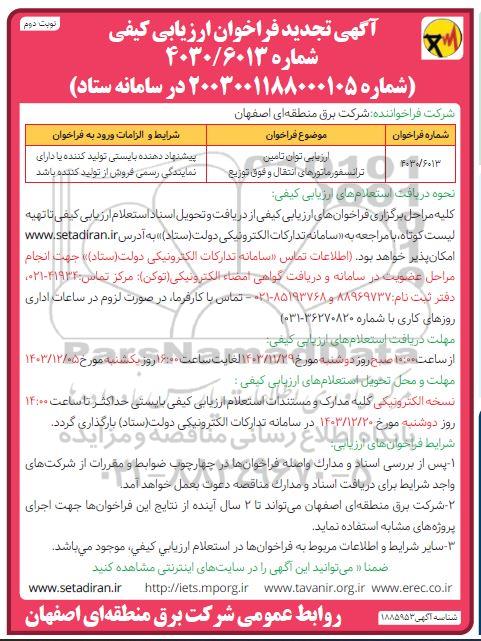 نوبت دوم
آگهی تجدید فراخوان ارزیابی کیفی
شماره ۴۰۳۰/۶۰۱۳
(شماره ۲۰۰۳۰۰۱۱۸۸۰۰۰۱۰۵ در سامانه ستاد)
شرکت فراخواننده: شرکت برق منطقه‌ای اصفهان
شماره فراخوان موضوع فراخوان شرایط و الزامات ورود به فراخوان
۴۰۳۰/۶۰۱۳ ارزیابی توان تامین ترانسفورماتورهای انتقال و فوق توزیع پیشنهاد دهنده بایستی تولید کننده یا دارای نمایندگی رسمی فروش از تولید کننده باشد
نحوه دریافت استعلام‌های ارزیابی کیفی:
کلیه مراحل برگزاری فراخوان‌های ارزیابی کیفی از دریافت و تحویل اسناد استعلام ارزیابی کیفی تا تهیه
لیست کوتاه، با مراجعه به «سامانه تدارکات الکترونیکی دولت (ستاد)» به آدرس www.setadiran.ir
امکان‌پذیر خواهد بود. (اطلاعات تماس «سامانه تدارکات الکترونیکی دولت(ستاد)» جهت انجام
مراحل عضویت در سامانه و دریافت گواهی امضاء الکترونیکی(توکن): مرکز تماس:۴۱۹۳۴-۰۲۱،
دفتر ثبت نام: ۸۸۹۶۹۷۳۷ و ۸۵۱۹۳۷۶۸-۰۲۱ – تماس با کارفرما، در صورت لزوم در ساعات اداری
روزهای کاری با شماره ۳۶۲۷۰۸۲۰-۰۳۱)
مهلت دریافت استعلام‌های ارزیابی کیفی:
از ساعت ۱۰:۰۰ صبح روز دوشنبه مورخ ۱۴۰۳/۱۱/۲۹ لغایت ساعت ۱۶:۰۰ روز یکشنبه مورخ ۱۴۰۳/۱۲/۰۵
مهلت و محل تحویل استعلام‌های ارزیابی کیفی :
نسخه الکترونیکی کلیه مدارک و مستندات استعلام ارزیابی کیفی بایستی حداکثر تا ساعت ۱۴:۰۰
روز دوشنبه مورخ ۱۴۰۳/۱۲/۲۰ در سامانه تدارکات الکترونیکی دولت(ستاد) بارگذاری گردد.
شرایط فراخوان‌های ارزیابی:
۱-پس از بررسی اسناد و مدارک واصله فراخوان‌ها در چهارچوب ضوابط و مقررات از شرکت‌های
واجد شرایط برای دریافت اسناد و مدارک مناقصه دعوت بعمل خواهد آمد.
۲-شرکت برق منطقه‌ای اصفهان می‌تواند تا ۲ سال آینده از نتایج این فراخوان‌ها جهت اجرای
پروژه‌های مشابه استفاده نماید.
۳-سایر شرایط و اطلاعات مربوط به فراخوان‌ها در استعلام ارزیابی کیفی، موجود می‌باشد.
ضمنا « می‌توانید این آگهی را در سایت‌های اینترنتی مشاهده کنید
www.setadiran.ir http://iets.mporg.ir www.tavanir.org.ir www.erec.co.ir
روابط عمومی شرکت برق منطقه‌ای اصفهان
شناسه آگهی ۱۸۸۵۹۵۳